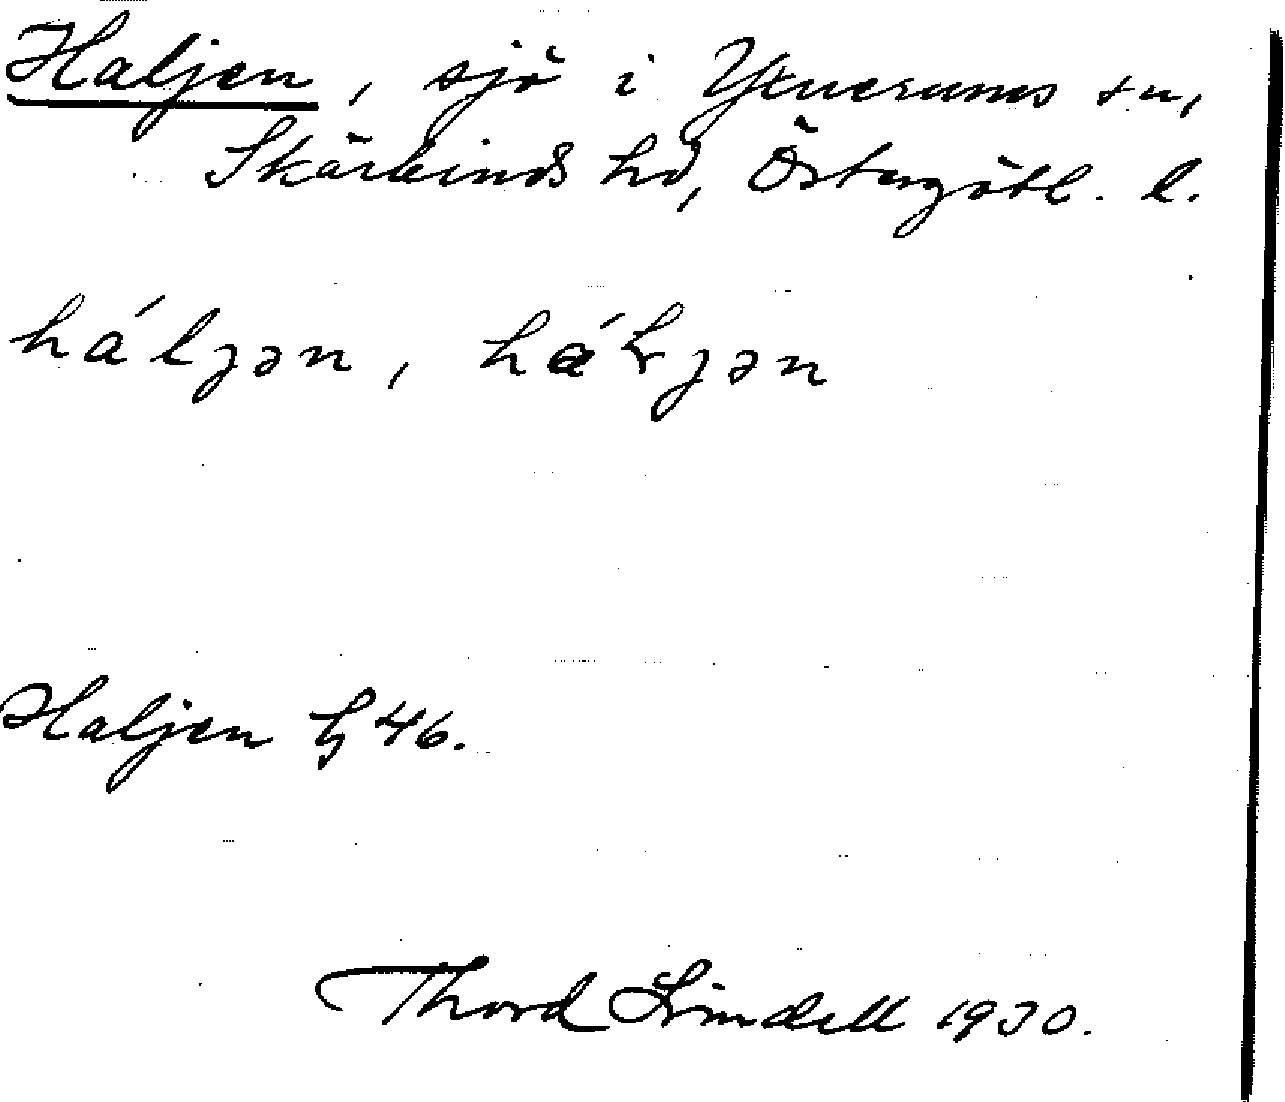 Haljen, sjö i Yxnerums sn,
Skärkinds hd, Östergötl. l.
háljən, há
Haljen 46.
Thord Lindell 1930.